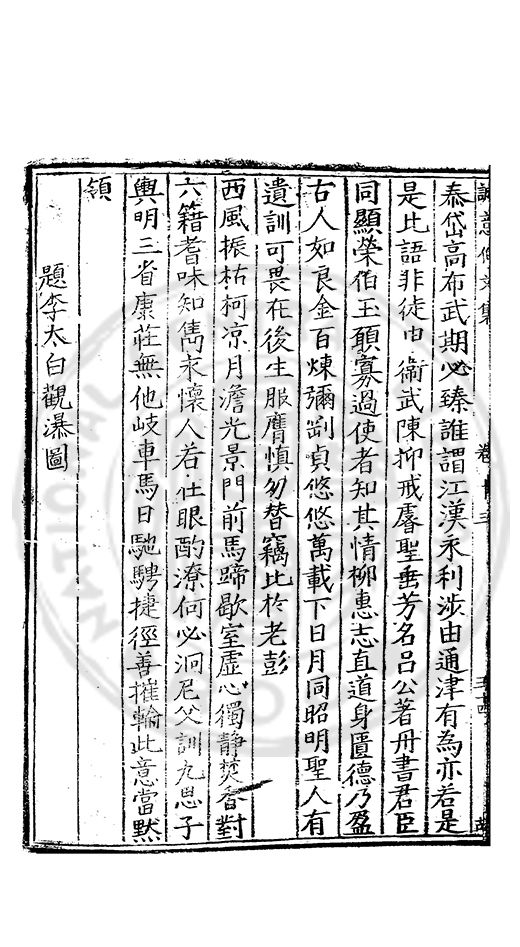 泰岱高布武期必臻誰謂江漢永利涉由通津有為亦若是
是比語非徒由衞武陳抑戒睿聖垂芳名呂公著丹書君臣
同顯榮伯玉願寡過使者知其情柳惠志直道身匱德乃盈
古人如良金百煉彌剛貞悠悠萬載下日月同昭明聖人有
遺訓可畏在後生服膺慎勿替竊比於老彭
西風振枯柯凉月澹光景門前馬蹄歇室虛心獨靜焚香對
六籍耆味知雋永懷人若在眼酌潦何必泂尼父訓九思子
輿明三省康莊無他岐車馬日馳騁捷徑善摧輪此意當默
領
題李太白觀瀑圖